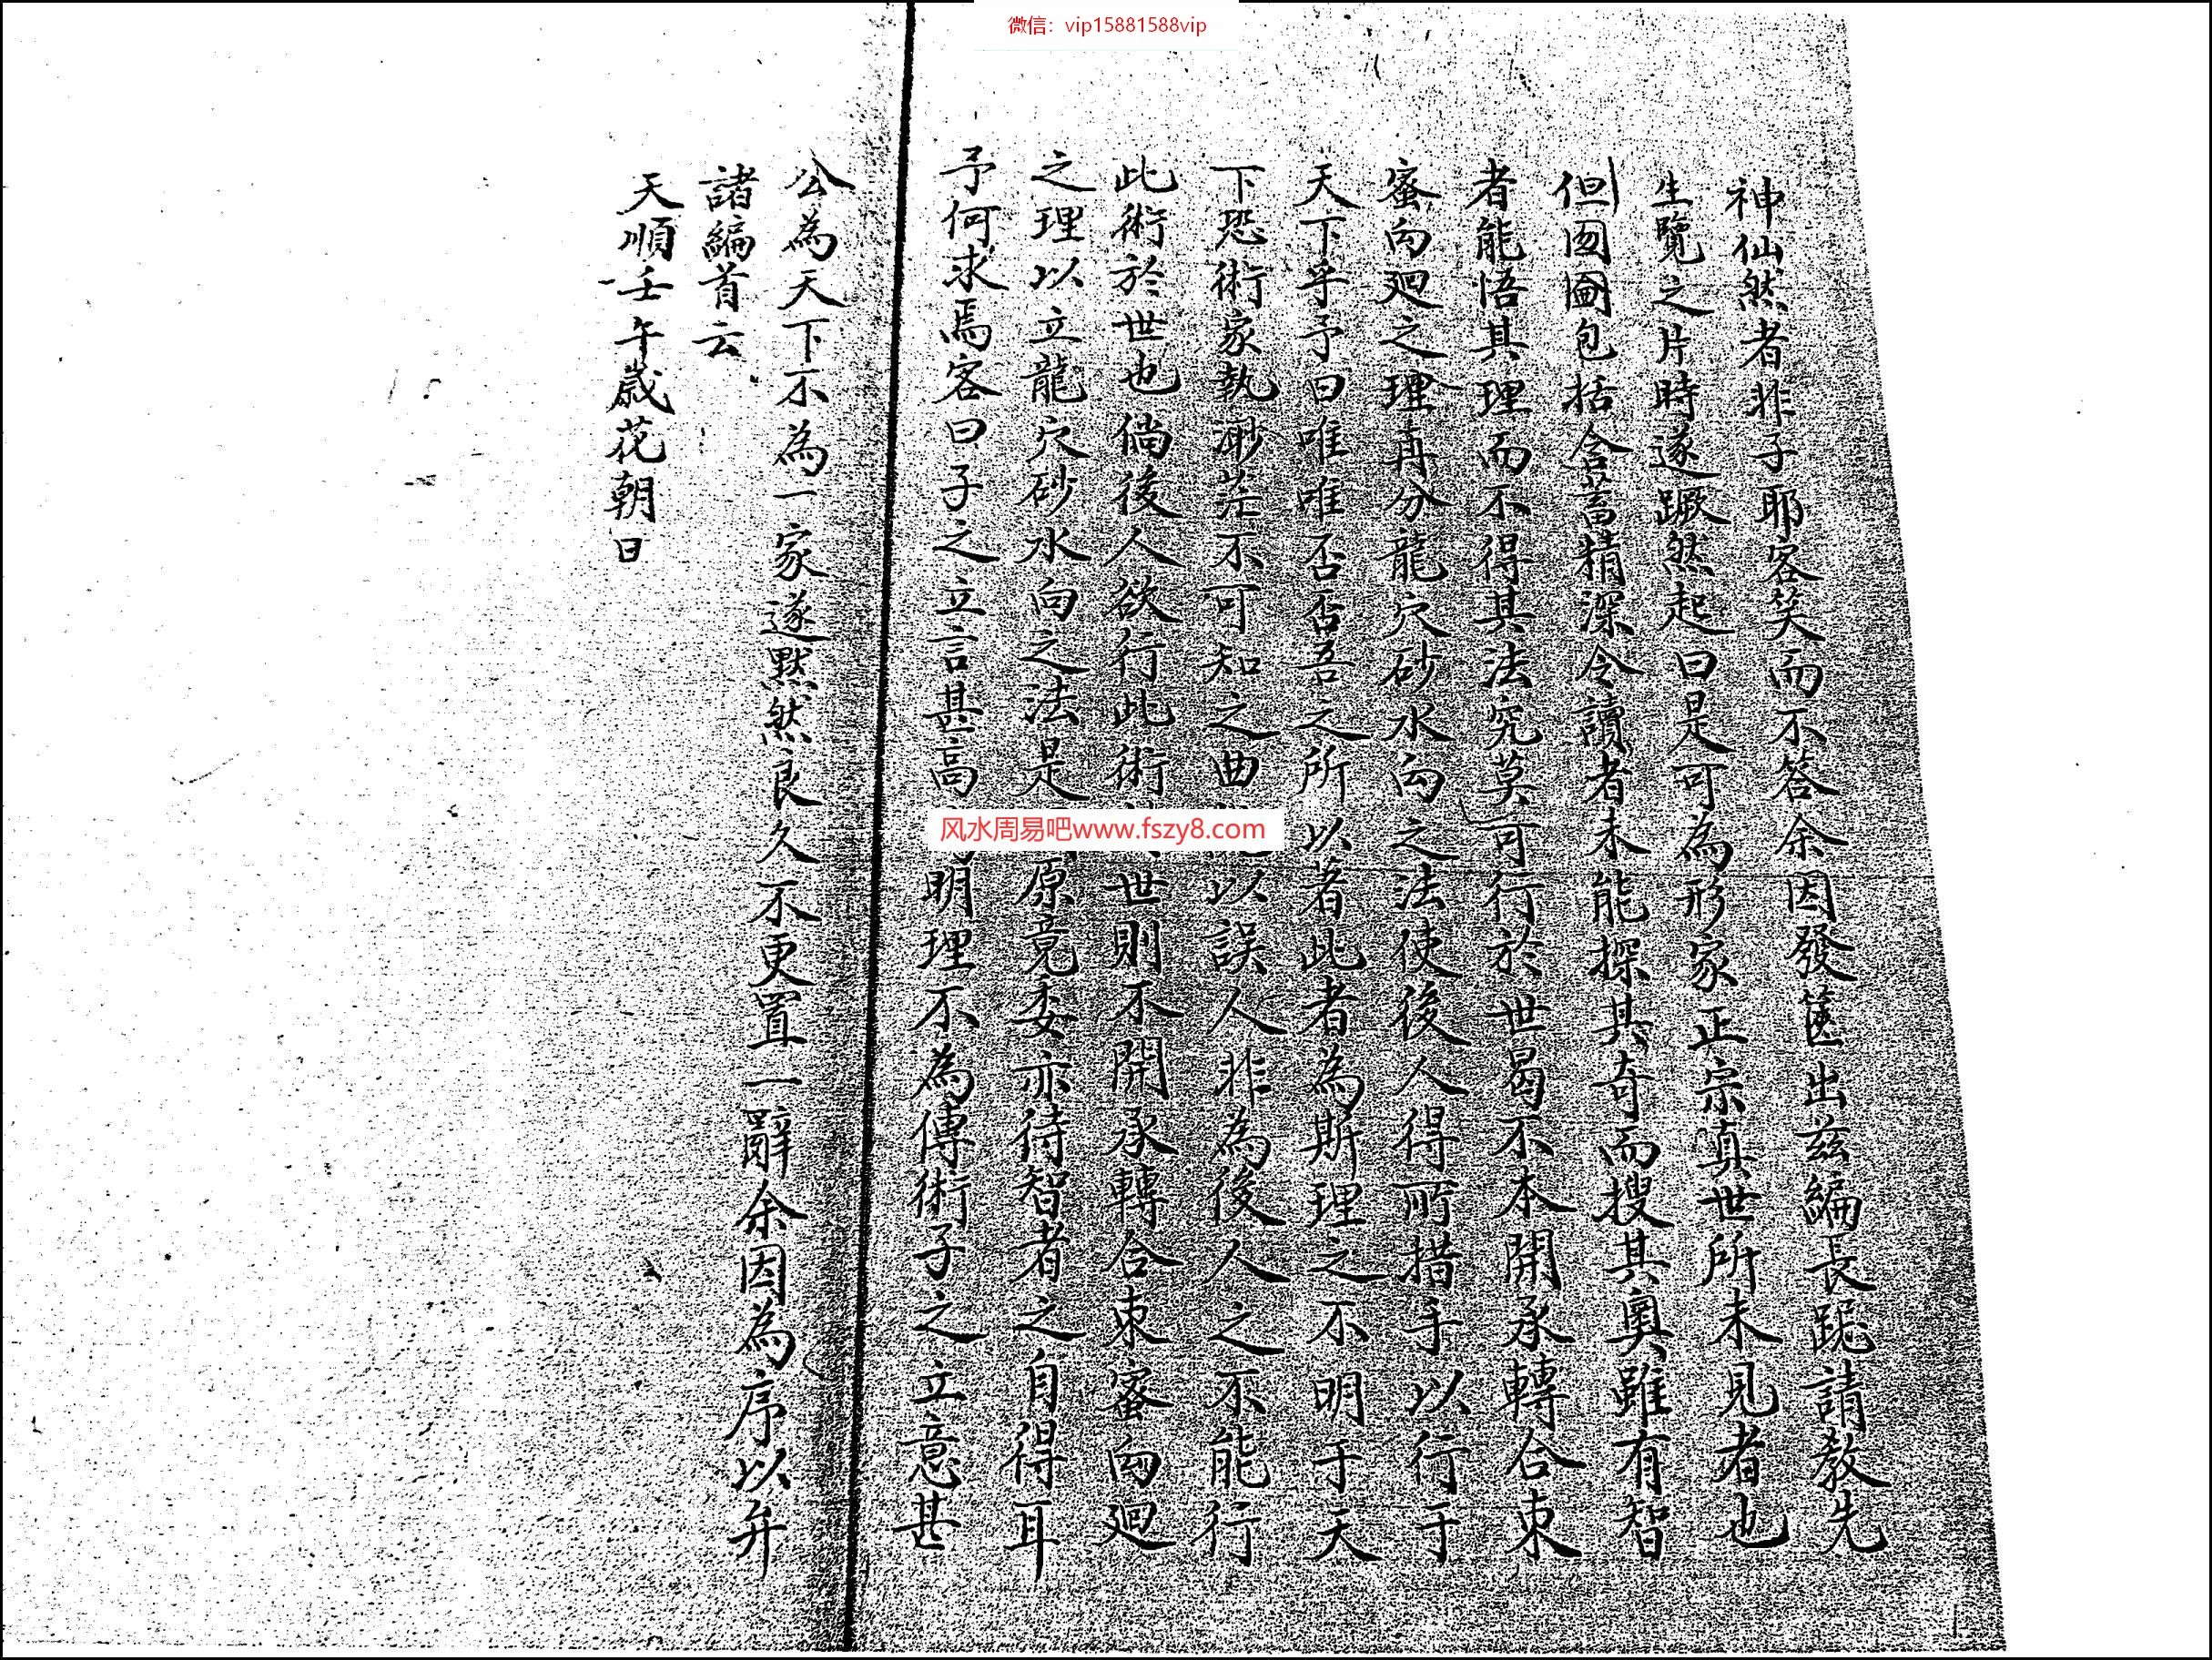 微信：vip15881588vip
神仙然者非子耶客笑而不答余因發篋出茲編長跽請教先
生覽之片時遂蹶然起曰是可為形家正宗真世所未見者也
但囫圇包括含蓄精深令讀者未能探其奇而搜其奧雖有智
者能悟其理而不得其法究莫可行於世曷不本開承轉合束
蜜向廻之理再分龍穴砂水向之法使後人得所措手以行于
天下乎予曰唯唯否否吾之所以著此者為斯理之不明于天
下恐術家執渺茫不可知之曲以誤人非為後人之不能行
此術於世也倘後人欲行此術世則不開承轉合束蜜向廻
之理以立龍穴砂水向之法是原竟委亦待智者之自得耳
予何求焉客曰子之立言甚高明理不為傳術子之立意甚
公為天下不為一家遂默然良久不更置一辭余因為序以弁
諸編首云
天順壬午歲花朝日
风水周易吧www.fszy8.com